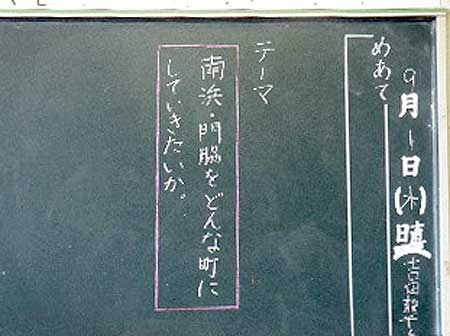 9月1日(木)
めあて
テーマ
南浜・門脇をどんな町に
していきたいか。